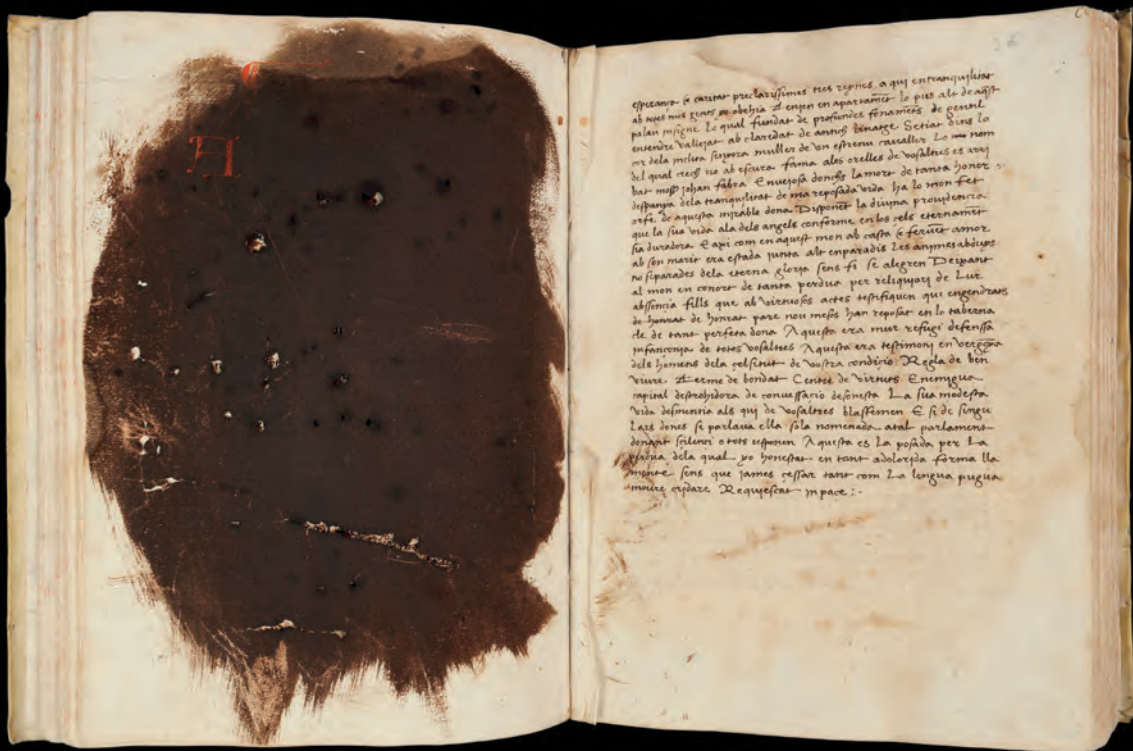 A
36
esperança e caritat preclarissimes tres reynes a qui en tranquilitat
ab totes mes gents obehia Tenien en apartamēt lo pus alt de aq̄st
palau insigne Lo qual fundat de profundes fonamēts de gentil
entendre vallejat ab claredat de antich linatge Setiat dins lo
cor dela inclita senyora muller de vn estrenu cavaller Lo nom
del qual crech no ab escura fama ales orelles de vosaltres es arri
bat moss̄ johan fabra Envejosa donchs la mort de tanta honor
despanya dela tranquilitat de ma reposada vida ha lo mon fet
orfe de aquesta mirable dona Disponēt la divina providencia
que la sua vida ala dels angels conforme en los cels eternamēt
sia duradora E axi com en aquest mon ab casta e feruēt amor
ab son marit era estada junta alt en paradis Les animes abdues
no separades dela eterna gloria sens fi se alegren Deixant
al mon en conort de tanta perdua per reliquiari de Lur
absencia fills que ab virtuosos actes testifiquen qui engendrats
de honrat de honrat pare nou mesos han reposat en lo taberna
cle de tant perfeta dona Aquesta era mur refugi defenssa
infançonia de totes vosaltres Aquesta era testimoni en
dels homens dela çelsitut de vostra condiçio Regla de ben
viure Terme de bondat Centre de virtuts Enemigua
capital destrohidora de conuerssacio desonesta La sua modesta
vida desmentia als qui de vosaltres blasfemen E si de singu
lars dones se parlava ella sola nomenada atal parlament
donant scilenci a tots responien Aquesta es La posada per La
perdua dela qual yo honestat en tant adolorida forma lla
mente sens que james cessar tant com La lengua pugua
moure cridare Requiescat in pace :-